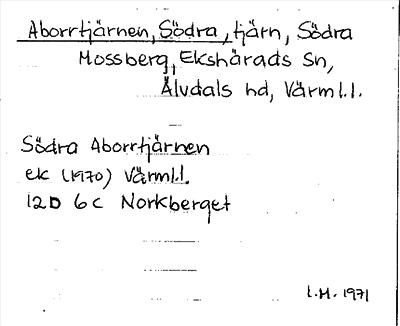 Aborrtjärnen, Södra, tjärn, Södra
Mossberg, Ekshärads Sn,
Älvdals hd, Värml.l.
Södra Aborrtjärnen
ek (1970) Värml.l.
12D 6c Norkberget
L.M. 1971